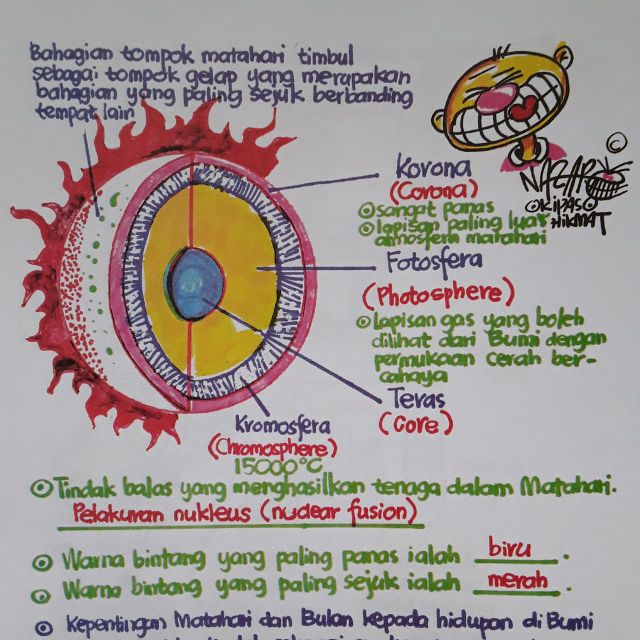 Bahagian tompok matahari timbul
sebagai tompok gelap yang merupakan
bahagian yang paling sejuk berbanding
tempat lain
©
NAZAR
KIPAS
HIKMAT
Korona
(Corona)
sangat panas
lapisan paling luar
atmosfera matahari
Fotosfera
(Photosphere)
lapisan gas yang boleh
dilihat dari Bumi dengan
permukaan cerah ber-
cahaya
Teras
(Core)
Kromosfera
(Chromosphere)
15000°C
Tindak balas yang menghasilkan tenaga dalam Matahari.
Pelakuran nukleus (nuclear fusion)
Warna bintang yang paling panas ialah biru.
Warna bintang yang paling sejuk ialah merah.
Kepentingan Matahari dan Bulan kepada hidupan di Bumi